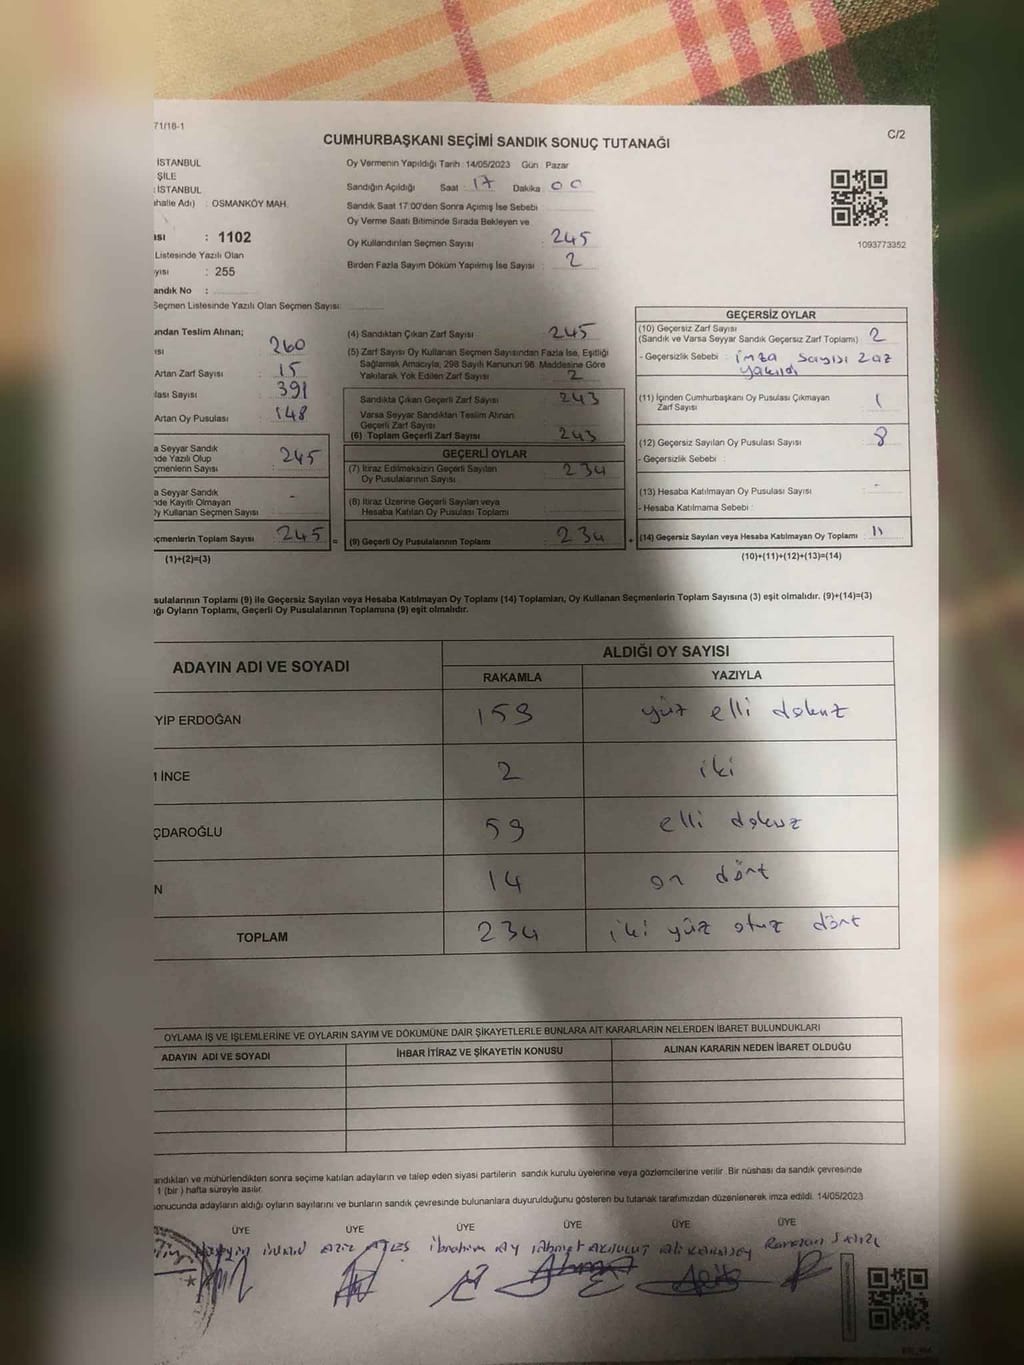 71/16-1
C/2
CUMHURBAŞKANI SEÇİMİ SANDIK SONUÇ TUTANAĞI
İSTANBUL
ŞİLE
: İSTANBUL
ahalle Adı) : OSMANKÖY MAH.
ısı : 1102
Listesinde Yazılı Olan
yısı : 255
andık No :
Seçmen Listesinde Yazılı Olan Seçmen Sayısı:
Oy Vermenin Yapıldığı Tarih : 14/05/2023 Gün : Pazar
Sandığın Açıldığı Saat : 17 Dakika : 00
Sandık Saat 17:00'den Sonra Açımış İse Sebebi
Oy Verme Saati Bitiminde Sırada Bekleyen ve
Oy Kullandırılan Seçmen Sayısı : 245
Birden Fazla Sayım Döküm Yapılmış İse Sayısı : 2
1093773352
undan Teslim Alınan;
ısı : 260
Artan Zarf Sayısı : 15
lası Sayısı : 391
Artan Oy Pusulası : 148
a Seyyar Sandık
nde Yazılı Olup
çmenlerin Sayısı : 245
a Seyyar Sandık
nde Kayıtlı Olmayan
Oy Kullanan Seçmen Sayısı : -
çmenlerin Toplam Sayısı : 245 =
(1)+(2)=(3)
(4) Sandıktan Çıkan Zarf Sayısı : 245
(5) Zarf Sayısı Oy Kullanan Seçmen Sayısından Fazla İse, Eşitliği
Sağlamak Amacıyla, 298 Sayılı Kanunun 98. Maddesine Göre
Yakılarak Yok Edilen Zarf Sayısı : 2
Sandıkta Çıkan Geçerli Zarf Sayısı : 243
Varsa Seyyar Sandıktan Teslim Alınan
Geçerli Zarf Sayısı :
(6) Toplam Geçerli Zarf Sayısı : 243
GEÇERLİ OYLAR
(7) İtiraz Edilmeksizin Geçerli Sayılan
Oy Pusulalarının Sayısı : 234
(8) İtiraz Üzerine Geçerli Sayılan veya
Hesaba Katılan Oy Pusulası Toplamı :
(9) Geçerli Oy Pusulalarının Toplamı : 234 +
GEÇERSİZ OYLAR
(10) Geçersiz Zarf Sayısı
(Sandık ve Varsa Seyyar Sandık Geçersiz Zarf Toplamı) : 2
- Geçersizlik Sebebi : imza sayısı 2 az
yakıldı
(11) İçinden Cumhurbaşkanı Oy Pusulası Çıkmayan
Zarf Sayısı : 1
(12) Geçersiz Sayılan Oy Pusulası Sayısı : 8
- Geçersizlik Sebebi :
(13) Hesaba Katılmayan Oy Pusulası Sayısı : -
- Hesaba Katılmama Sebebi :
(14) Geçersiz Sayılan veya Hesaba Katılmayan Oy Toplamı : 11
(10)+(11)+(12)+(13)=(14)
sulalarının Toplamı (9) ile Geçersiz Sayılan veya Hesaba Katılmayan Oy Toplamı (14) Toplamları, Oy Kullanan Seçmenlerin Toplam Sayısına (3) eşit olmalıdır. (9)+(14)=(3)
ığı Oyların Toplamı, Geçerli Oy Pusulalarının Toplamına (9) eşit olmalıdır.
ADAYIN ADI VE SOYADI
ALDIĞI OY SAYISI
RAKAMLA YAZIYLA
YİP ERDOĞAN 159 yüz elli dokuz
M İNCE 2 iki
ÇDAROĞLU 59 elli dokuz
N 14 on dört
TOPLAM 234 iki yüz otuz dört
OYLAMA İŞ VE İŞLEMLERİNE VE OYLARIN SAYIM VE DÖKÜMÜNE DAİR ŞİKAYETLERLE BUNLARA AİT KARARLARIN NELERDEN İBARET BULUNDUKLARI
ADAYIN ADI VE SOYADI İHBAR İTİRAZ VE ŞİKAYETİN KONUSU ALINAN KARARIN NEDEN İBARET OLDUĞU
andıkları ve mühürlendikten sonra seçime katılan adayların ve talep eden siyasi partilerin sandık kurulu üyelerine veya gözlemcilerine verilir. Bir nüshası da sandık çevresinde
1 (bir) hafta süreyle asılır.
onucunda adayların aldığı oyların sayılarını ve bunların sandık çevresinde bulunanlara duyurulduğunu gösteren bu tutanak tarafımızdan düzenlenerek imza edildi. 14/05/2023
ÜYE ÜYE ÜYE ÜYE ÜYE ÜYE
Hüseyin AZİZ ATEŞ İbrahim AY Ahmet AKBULUT Ramazan